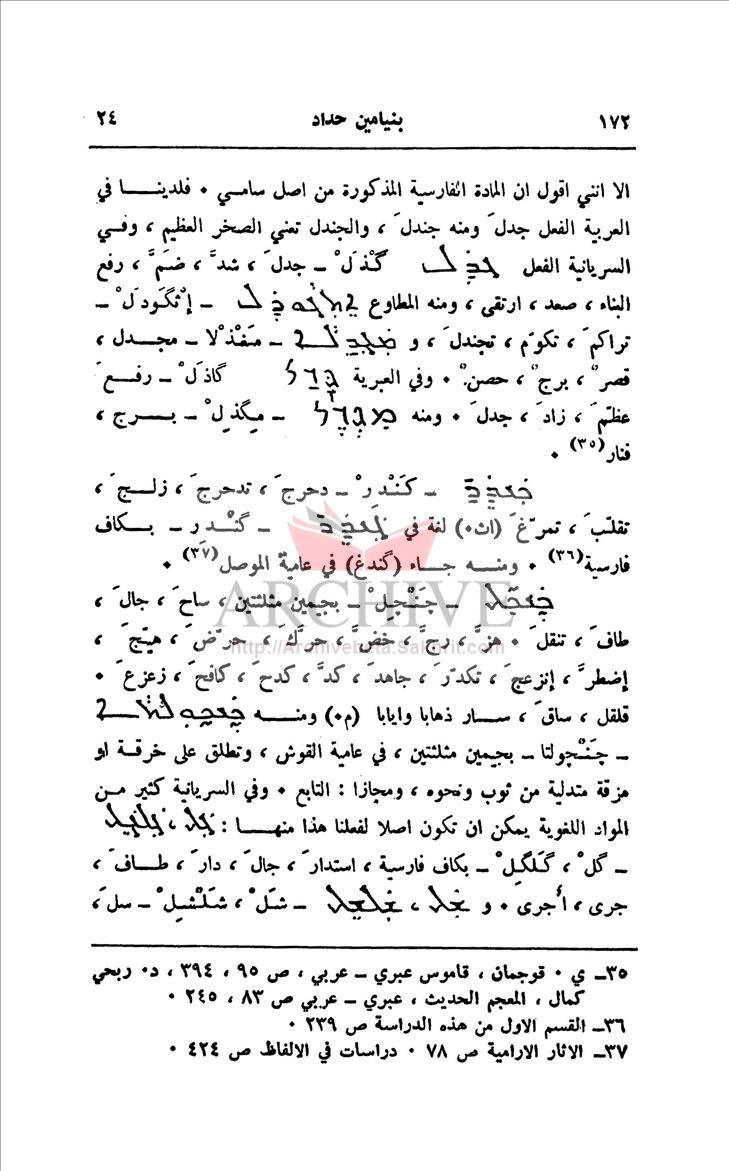 ١٧٢ بنيامين حداد ٢٤
الا انني اقول ان المادة الفارسية المذكورة من اصل سامي ٠ فلدينـــا في
العربية الفعل جدلَ ومنه جندلَ ، والجندل تعني الصخر العظيم ، وفـي
السريانية الفعل ܓܕܠ گْذَلْ ـ جدلَ ، شدَّ ، ضمَّ ، رفع
البناء ، صعد ، ارتقى ، ومنه المطاوع ـ إثگودَلْ ـ
تراكمَ ، تكوّم ، تجندلَ ، و ܡܓܕܠܐ ـ مَغْذْلا ـ مجـدل ،
قصرٌ ، برجٌ ، حصنٌ ٠ وفي العبرية גדל گاذَلْ ـ رفـعَ
عظّمَ ، زادَ ، جدلَ ٠ ومنه מגדל ـ مِگذِلْ ـ بـــرج ،
فنار(٣٥) ٠
ـ كَنْدِرْ ـ دحرجَ ، تدحرجَ ، زلــجَ ،
تقلّبَ ، تمرّغَ (اث٠) لغة في ـ گَنْدر ـ بـــكاف
فارسية(٣٦) ٠ ومنـــه جـاء (گندغ) في عامية الموصل(٣٧) ٠
ARCHIVE
ـ چَنْچِلْ ـ بجيمين مثلثتين ، ساحَ ، جالَ ،
طافَ ، تنقلَ ٠ هزَّ ، رجَّ ، خضَّ ، حرَّكَ ، حرّضَ ، هيّجَ ،
http://Archivebeta.Sakhrit.com
إضطرَّ ، إنزعجَ ، تكدّرَ ، جاهدَ ، كدَّ ، كدحَ ، كافحَ ، زعزعَ ٠
قلقل ، ساقَ ، ســار ذهابا وايابا (م٠) ومنـــه
ـ چَنْچولتا ـ بجيمين مثلثتين ، في عامية القوش ، وتطلق على خرقـة او
مزقة متدلية من ثوب ونحوه ، ومجازا : التابع ٠ وفي السريانية كثير مـن
المواد اللغوية يمكن ان تكون اصلا لفعلنا هذا منهــا : ܓܠ ، ܓܠܓܠ
ـ گلْ ، گَلگِلْ ـ بكاف فارسية ، استدارَ ، جالَ ، دارَ ، طــافَ ،
جرى ، أجرى ٠ و ـ شَلْ ، شَلْشِلْ ـ سلَ ،
٣٥ـ ي ٠ قوجمان ، قاموس عبري ـ عربي ، ص ٩٥ ، ٣٩٤ ، د٠ ربحي
كمال ، المعجم الحديث ، عبري ـ عربي ص ٨٣ ، ٢٤٥ ٠
٣٦ـ القسم الاول من هذه الدراسة ص ٢٣٩ ٠
٣٧ـ الاثار الارامية ص ٧٨ ٠ دراسات في الالفاظ ص ٤٢٤ ٠